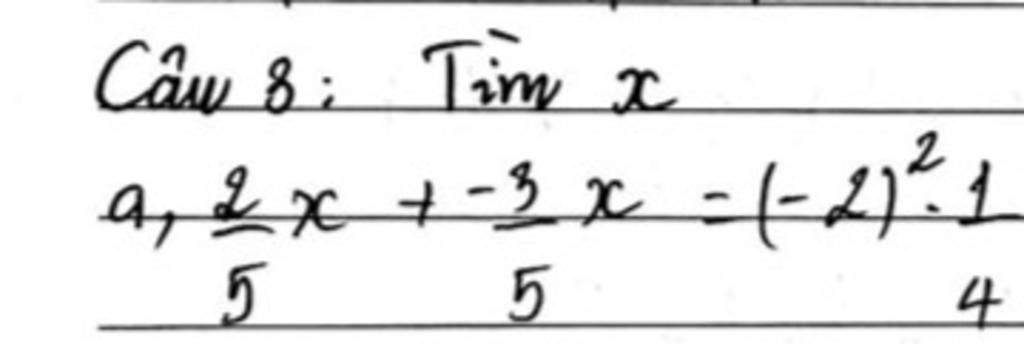 Câu 8: Tìm x
a, 2/5 x + -3/5 x = (-2)². 1/4